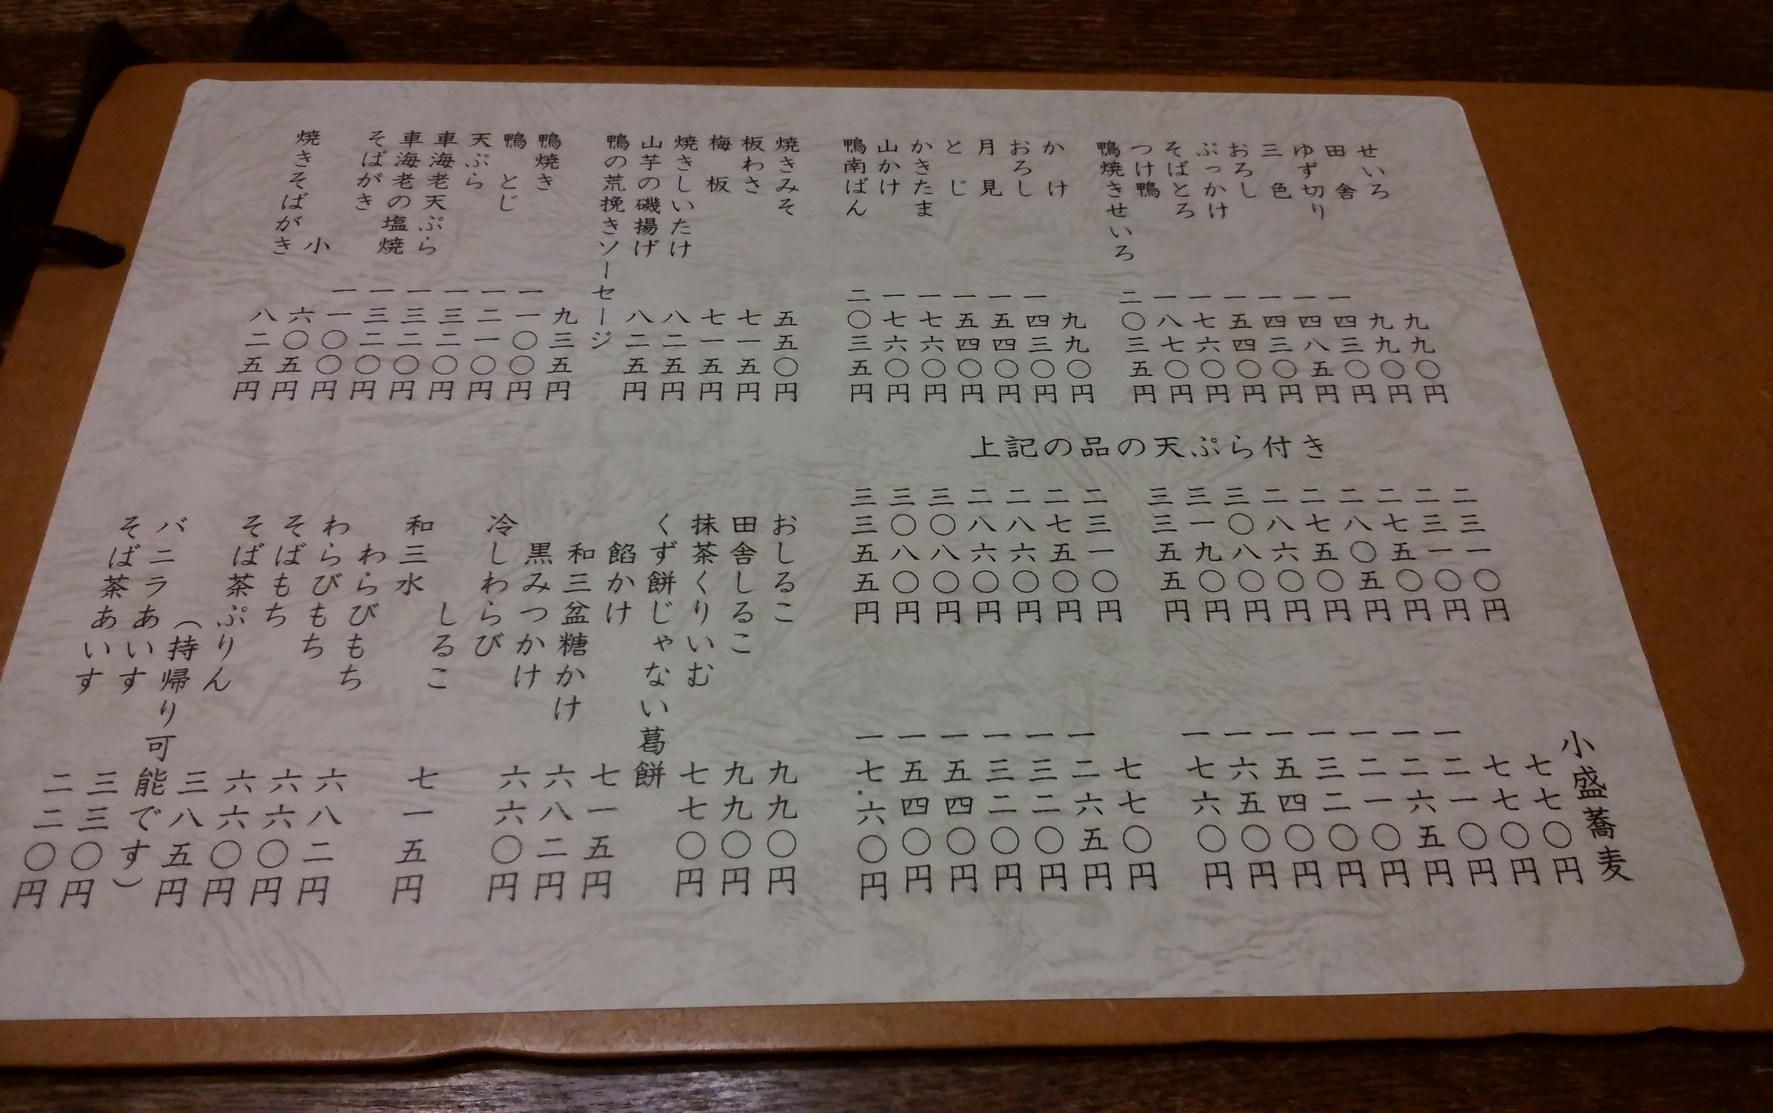 せいろ 九九〇円
田舎 九九〇円
ゆず切り 一四三〇円
三色 一四八五円
おろし 一四三〇円
ぶっかけ 一五四〇円
そばとろ 一七六〇円
つけ鴨 一八七〇円
鴨焼きせいろ 二〇三五円
かけ 九九〇円
おろし 一四三〇円
月見 一五四〇円
とじ 一五四〇円
かきたま 一七六〇円
山かけ 一七六〇円
鴨南ばん 二〇三五円
焼きみそ 五五〇円
板わさ 七一五円
梅板 七一五円
焼きしいたけ 八二五円
山芋の磯揚げ 八二五円
鴨の荒挽きソーセージ 九三五円
鴨焼き 一一〇〇円
鴨とじ 一二一〇円
天ぷら 一三二〇円
車海老天ぷら 一三二〇円
車海老の塩焼 一三二〇円
そばがき 一一〇〇円
小 六〇五円
焼きそばがき 八二五円
上記の品の天ぷら付き
二三一〇円
二三一〇円
二七五〇円
二八〇五円
二七五〇円
二八六〇円
三〇八〇円
三一九〇円
三三五五円
二三一〇円
二七五〇円
二八六〇円
二八六〇円
三〇八〇円
三〇八〇円
三三五五円
小盛蕎麦
七七〇円
七七〇円
一二一〇円
一二六五円
一二一〇円
一三二〇円
一五四〇円
一六五〇円
一七六〇円
七七〇円
一二六五円
一三二〇円
一三二〇円
一五四〇円
一五四〇円
一七六〇円
おしるこ 九九〇円
田舎しるこ 九九〇円
抹茶くりいむ 七七〇円
くず餅じゃない葛餅
餡かけ 七一五円
和三盆糖かけ 六八二円
黒みつかけ 六六〇円
冷しわらび
しるこ 七一五円
和三水
わらびもち 六八二円
わらびもち 六六〇円
そばもち 六六〇円
そば茶ぷりん 三八五円
(持帰り可能です)
バニラあいす 三三〇円
そば茶あいす 二二〇円